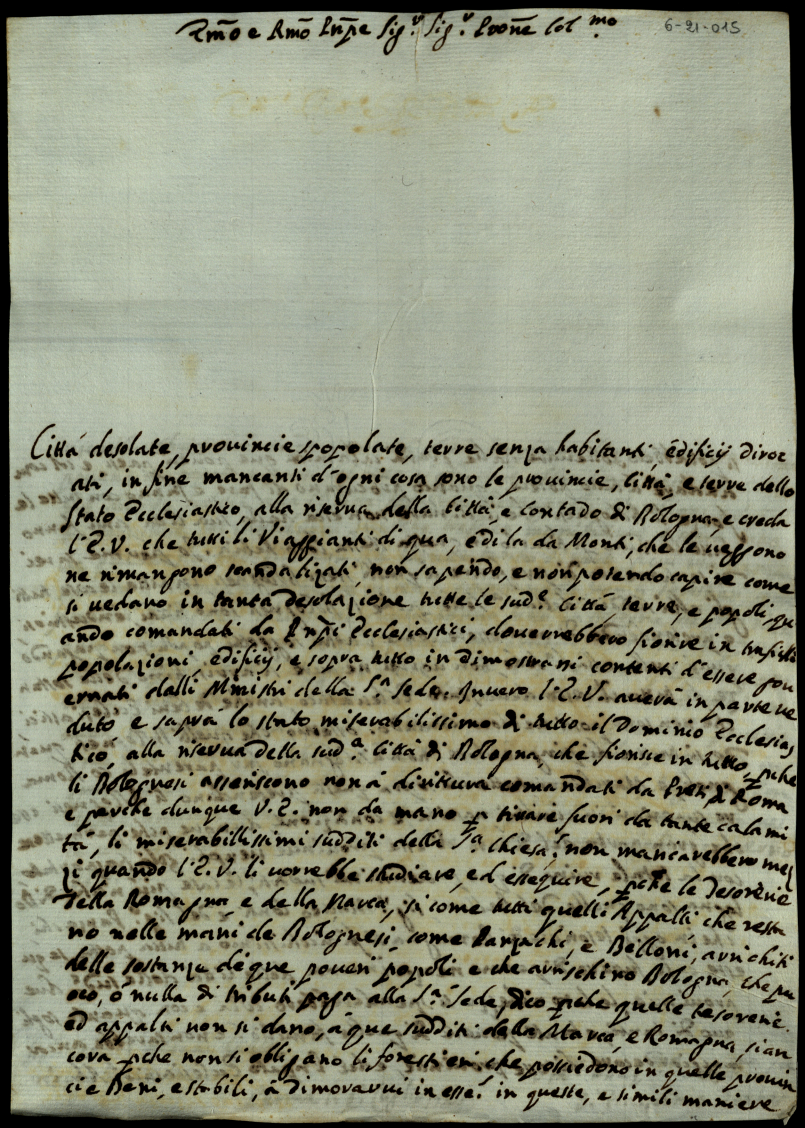 Emo e Rmo Prnpe Sigr. Sigr. Prone Col mo.
6-21-015
Città desolate, prouincie spopolate, terre senza habitanti edificij diroc
ati, in fine mancanti d'ogni cosa sono le prouincie, Città, e terre dello
Stato Ecclesiastico, alla riserua della Città, e Contado di Bologna, e creda
l'E.V. che tutti li Viaggianti di qua, e di la da Monti, che le ueggono
ne rimangono scandalizati, non sapendo, e non potendo capire come
si uedano in tanta desolazione tutte le sud.e Città, terre, e popoli, qu
ando comandati da Prnpi Ecclesiastici, douerrebbero fiorire in
popolazioni edificij, e sopra tutto in dimostrarsi contenti d'essere gou
ernati dalli Ministri della S.a Sede. Inuero l'E.V. auerà in parte ue
duto e saprà lo stato miserabilissimo di tutto il Dominio Ecclesias
tico, alla riserua della sud.a Città di Bologna, che fiorisce in tutto, pche
li Bolognesi asseriscono non à dirittura comandati da Preti di Roma
e perche dunque V.E. non da mano p tirare fuori da tante calami
tà, li miserabillissimi sudditi della S.a Chiesa? non mancarebbero mez
zi quando l'E.V. li uorrebbe studiare, ed esseguire, pche le Tesorerie
della Romagna, e della Marca, si come tutti quelli Appalti che resta
no nelle mani de Bolognesi, come e Belloni, arrichiti
delle sostanze de que poueri popoli e che arrischino Bologna, che po
oco, ò nulla di tributi paga alla S.a Sede, dico pche quelle tesorerie
ed appalti non si dano, à que sudditi della Marca, e Romagna, si an
cora pche non si obligano li forestieri che possiedono in quelle prouin
cie Beni, e stabili, à dimorarui in esse? in queste, e simili maniere